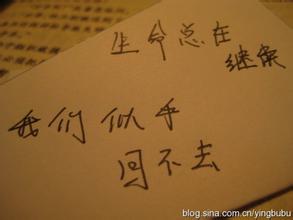 生命总在
继续
我们似乎
回不去
blog.sina.com.cn/yingbubu